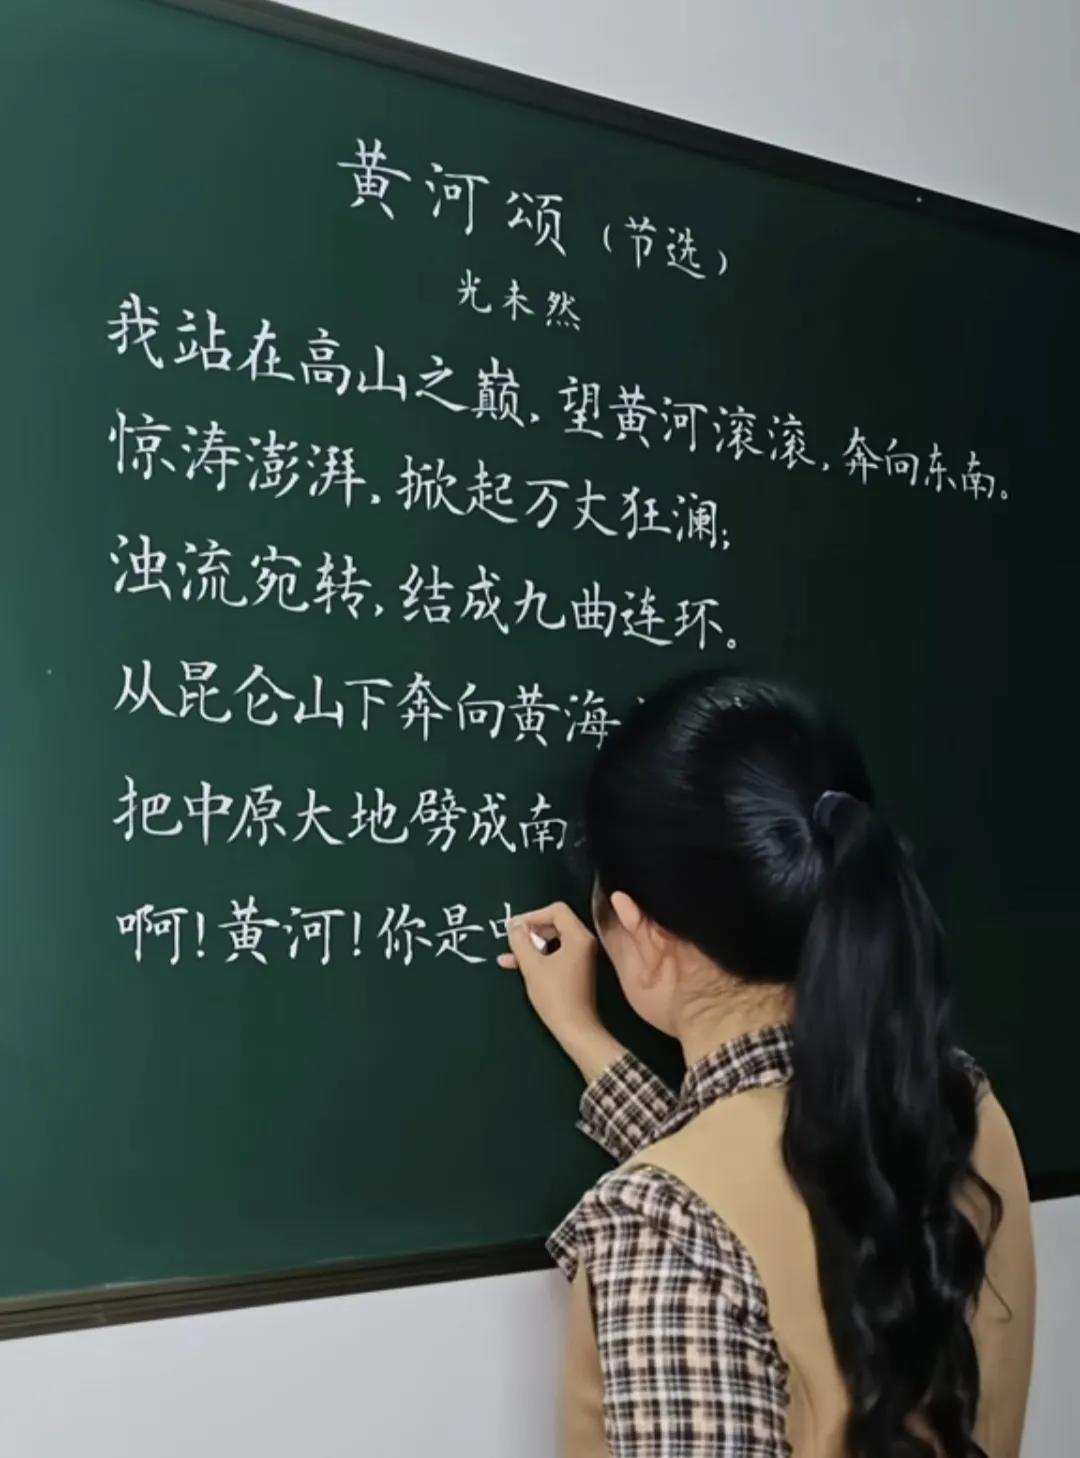 黄河颂（节选）
光未然
我站在高山之巅，望黄河滚滚，奔向东南。
惊涛澎湃，掀起万丈狂澜；
浊流宛转，结成九曲连环。
从昆仑山下奔向黄海
把中原大地劈成南
啊！黄河！你是